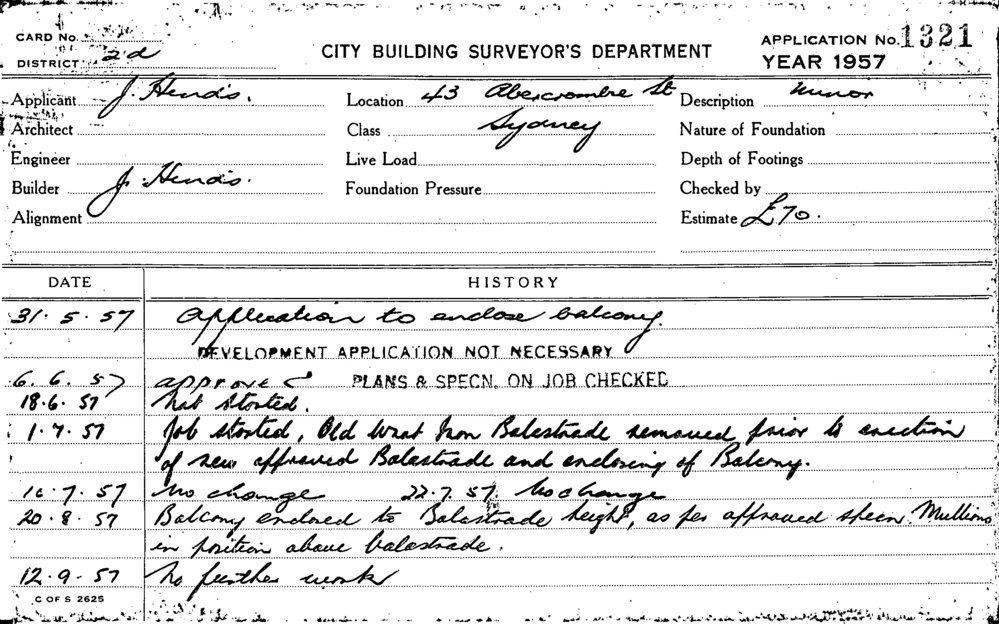 CARD No.
DISTRICT 2d
CITY BUILDING SURVEYOR'S DEPARTMENT
APPLICATION No. 1321
YEAR 1957
Applicant J. Hendis.
Location 43 Abercrombie St
Description Minor
Architect
Class Sydney
Nature of Foundation
Engineer
Live Load
Depth of Footings
Builder J. Hendis.
Foundation Pressure
Checked by
Alignment
Estimate £70.
DATE
HISTORY
31. 5. 57 Application to enclose balcony.
DEVELOPMENT APPLICATION NOT NECESSARY
6. 6. 57 approved PLANS & SPECN. ON JOB CHECKED
18.6. 57 Not Started.
1. 7. 57 Job started, Old Wrot Iron Balestrade removed prior to erection
of new approved Balestrade and enclosing of Balcony.
16. 7. 57 No change 22. 7. 57 No change
20. 8. 57 Balcony enclosed to Balestrade height, as per approved specn. Mullions
in position above balestrade.
12. 9. 57 No further work
C OF S 2625